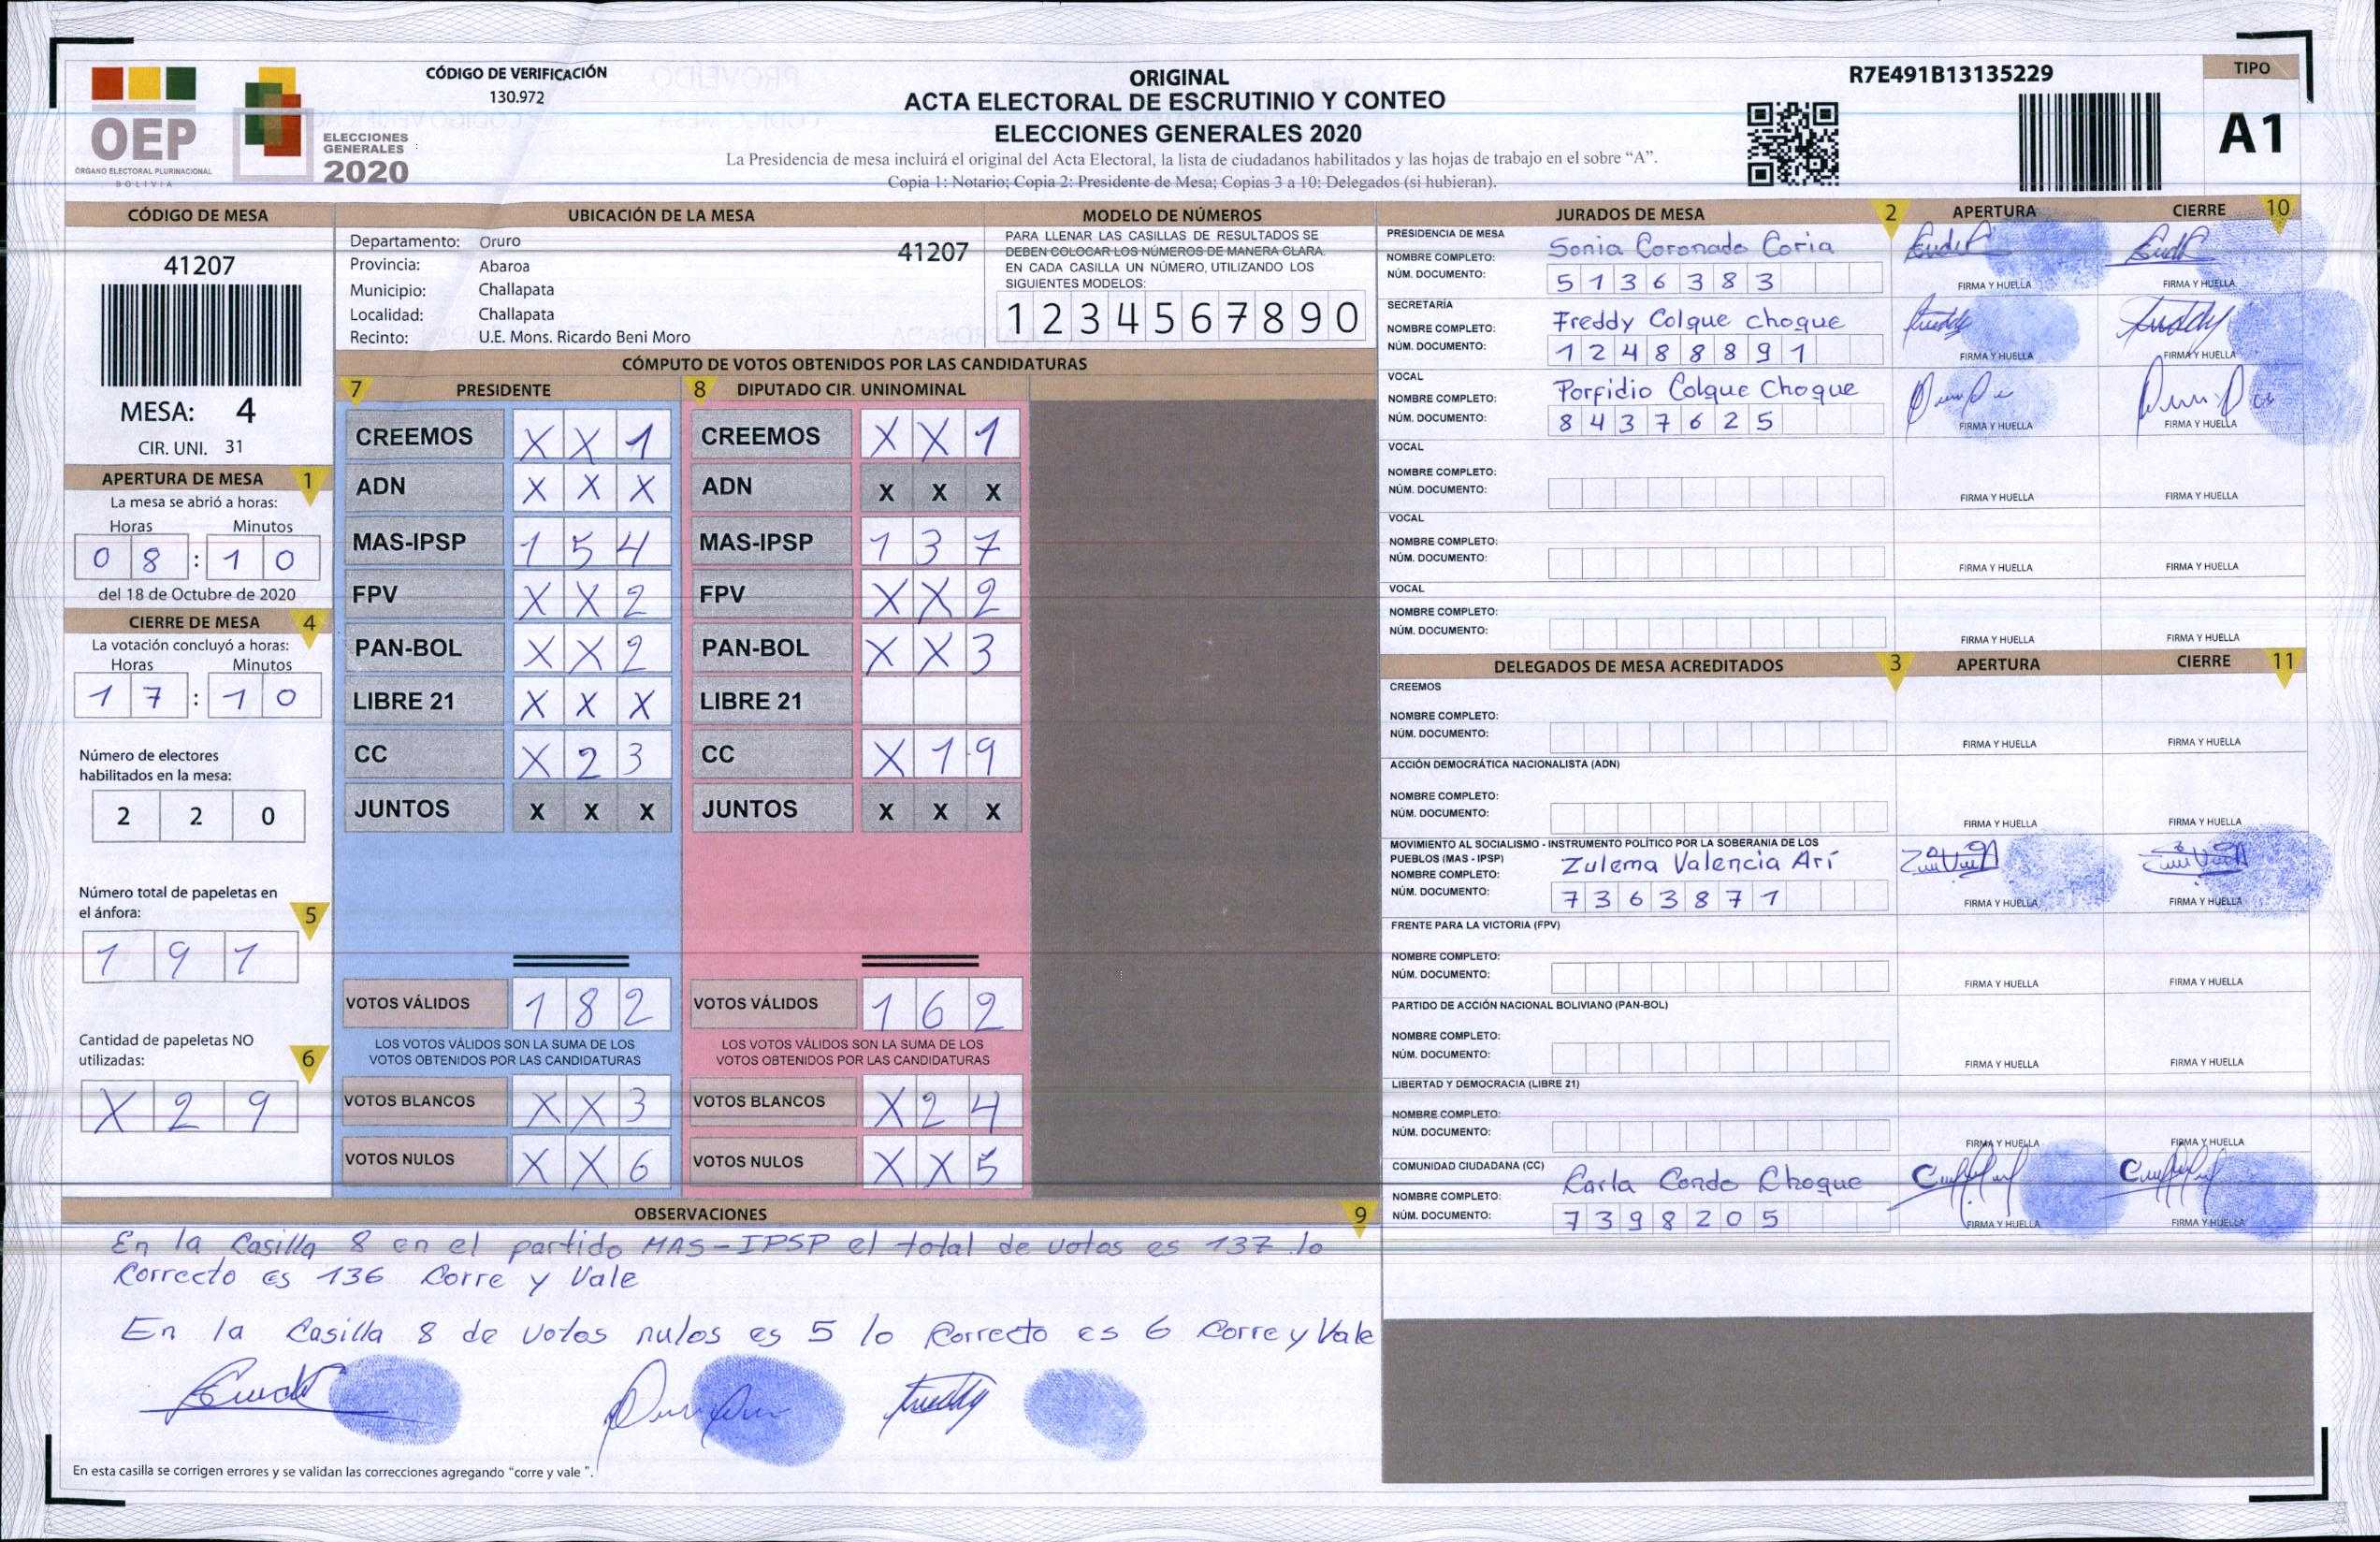 OEP
ÓRGANO ELECTORAL PLURINACIONAL
BOLIVIA
ELECCIONES
GENERALES
2020
CÓDIGO DE VERIFICACIÓN
130.972
ORIGINAL
ACTA ELECTORAL DE ESCRUTINIO Y CONTEO
ELECCIONES GENERALES 2020
La Presidencia de mesa incluirá el original del Acta Electoral, la lista de ciudadanos habilitados y las hojas de trabajo en el sobre “A”.
Copia 1: Notario; Copia 2: Presidente de Mesa; Copias 3 a 10: Delegados (si hubieran).
R7E491B13135229
TIPO
A1
CÓDIGO DE MESA
41207
MESA: 4
CIR. UNI. 31
APERTURA DE MESA 1
La mesa se abrió a horas:
Horas Minutos
0 8 : 1 0
del 18 de Octubre de 2020
CIERRE DE MESA 4
La votación concluyó a horas:
Horas Minutos
1 7 : 1 0
Número de electores
habilitados en la mesa:
2 2 0
Número total de papeletas en
el ánfora: 5
1 9 1
Cantidad de papeletas NO
utilizadas: 6
X 2 9
UBICACIÓN DE LA MESA
Departamento: Oruro
41207
Provincia: Abaroa
Municipio: Challapata
Localidad: Challapata
Recinto: U.E. Mons. Ricardo Beni Moro
MODELO DE NÚMEROS
PARA LLENAR LAS CASILLAS DE RESULTADOS SE
DEBEN COLOCAR LOS NÚMEROS DE MANERA CLARA.
EN CADA CASILLA UN NÚMERO, UTILIZANDO LOS
SIGUIENTES MODELOS:
1 2 3 4 5 6 7 8 9 0
CÓMPUTO DE VOTOS OBTENIDOS POR LAS CANDIDATURAS
7 PRESIDENTE 8 DIPUTADO CIR. UNINOMINAL
CREEMOS X X 1 CREEMOS X X 1
ADN X X X ADN X X X
MAS-IPSP 1 5 4 MAS-IPSP 1 3 7
FPV X X 2 FPV X X 2
PAN-BOL X X 2 PAN-BOL X X 3
LIBRE 21 X X X LIBRE 21
CC X 2 3 CC X 1 9
JUNTOS X X X JUNTOS X X X
VOTOS VÁLIDOS 1 8 2 VOTOS VÁLIDOS 1 6 2
LOS VOTOS VÁLIDOS SON LA SUMA DE LOS LOS VOTOS VÁLIDOS SON LA SUMA DE LOS
VOTOS OBTENIDOS POR LAS CANDIDATURAS VOTOS OBTENIDOS POR LAS CANDIDATURAS
VOTOS BLANCOS X X 3 VOTOS BLANCOS X 2 4
VOTOS NULOS X X 6 VOTOS NULOS X X 5
OBSERVACIONES 9
En la Casilla 8 en el partido MAS-IPSP el total de votos es 137 lo
Correcto es 136 Corre y Vale
En la Casilla 8 de votos nulos es 5 lo Correcto es 6 Corre y Vale
En esta casilla se corrigen errores y se validan las correcciones agregando “corre y vale ”.
JURADOS DE MESA 2 APERTURA CIERRE 10
PRESIDENCIA DE MESA
NOMBRE COMPLETO: Sonia Coronado Coria
NÚM. DOCUMENTO: 5 1 3 6 3 8 3
FIRMA Y HUELLA FIRMA Y HUELLA
SECRETARÍA
NOMBRE COMPLETO: Freddy Colque choque
NÚM. DOCUMENTO: 1 2 4 8 8 8 9 1
FIRMA Y HUELLA FIRMA Y HUELLA
VOCAL
NOMBRE COMPLETO: Porfidio Colque Choque
NÚM. DOCUMENTO: 8 4 3 7 6 2 5
FIRMA Y HUELLA FIRMA Y HUELLA
VOCAL
NOMBRE COMPLETO:
NÚM. DOCUMENTO:
FIRMA Y HUELLA FIRMA Y HUELLA
VOCAL
NOMBRE COMPLETO:
NÚM. DOCUMENTO:
FIRMA Y HUELLA FIRMA Y HUELLA
VOCAL
NOMBRE COMPLETO:
NÚM. DOCUMENTO:
FIRMA Y HUELLA FIRMA Y HUELLA
DELEGADOS DE MESA ACREDITADOS 3 APERTURA CIERRE 11
CREEMOS
NOMBRE COMPLETO:
NÚM. DOCUMENTO:
FIRMA Y HUELLA FIRMA Y HUELLA
ACCIÓN DEMOCRÁTICA NACIONALISTA (ADN)
NOMBRE COMPLETO:
NÚM. DOCUMENTO:
FIRMA Y HUELLA FIRMA Y HUELLA
MOVIMIENTO AL SOCIALISMO - INSTRUMENTO POLÍTICO POR LA SOBERANIA DE LOS
PUEBLOS (MAS - IPSP)
NOMBRE COMPLETO: Zulema Valencia Arí
NÚM. DOCUMENTO: 7 3 6 3 8 7 1
FIRMA Y HUELLA FIRMA Y HUELLA
FRENTE PARA LA VICTORIA (FPV)
NOMBRE COMPLETO:
NÚM. DOCUMENTO:
FIRMA Y HUELLA FIRMA Y HUELLA
PARTIDO DE ACCIÓN NACIONAL BOLIVIANO (PAN-BOL)
NOMBRE COMPLETO:
NÚM. DOCUMENTO:
FIRMA Y HUELLA FIRMA Y HUELLA
LIBERTAD Y DEMOCRACIA (LIBRE 21)
NOMBRE COMPLETO:
NÚM. DOCUMENTO:
FIRMA Y HUELLA FIRMA Y HUELLA
COMUNIDAD CIUDADANA (CC)
NOMBRE COMPLETO: Carla Condo Choque
NÚM. DOCUMENTO: 7 3 9 8 2 0 5
FIRMA Y HUELLA FIRMA Y HUELLA